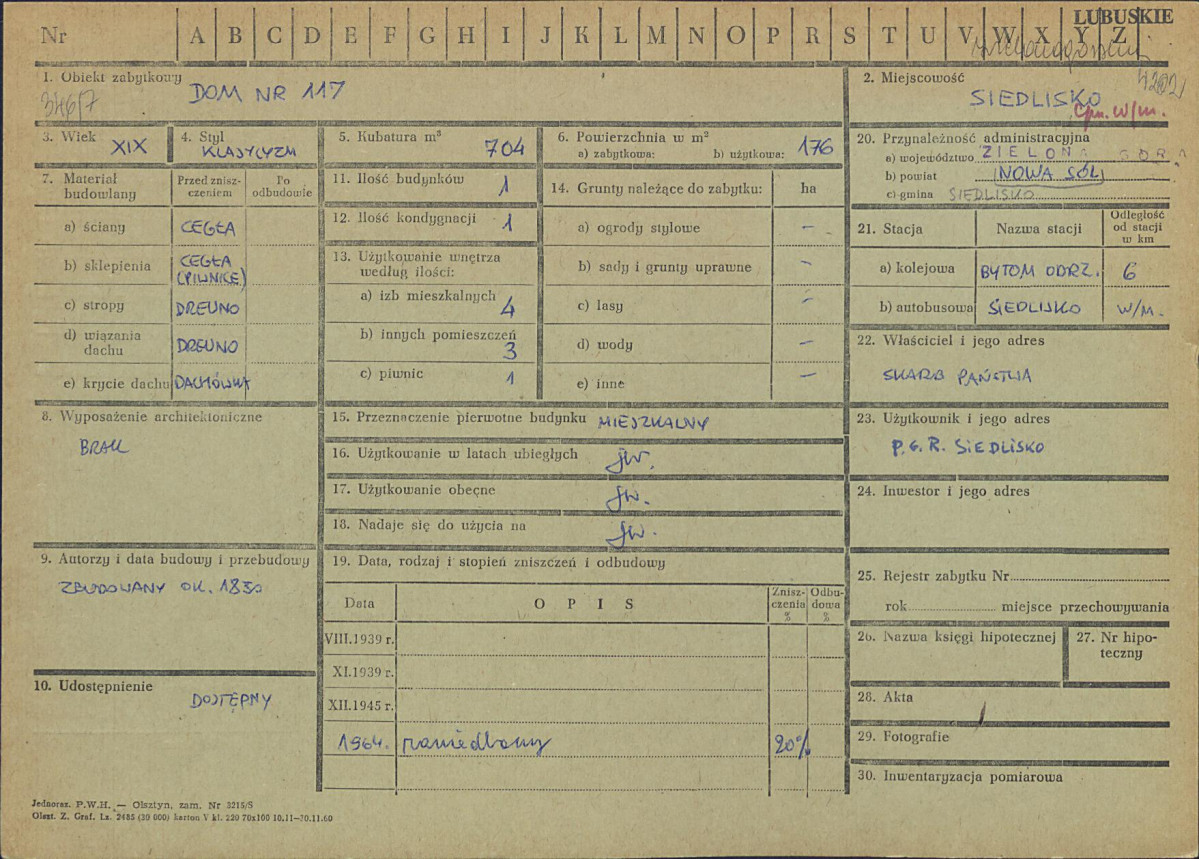 LUBUSKIE
Nr A B C D E F G H I J K L M N O P R S T U V W X Y Z
1. Obiekt zabytkowy
DOM NR 117
2. Miejscowość
SIEDLISKO
w/m.
3. Wiek XIX
4. Styl KLASYCYZM
5. Kubatura m³ 704
6. Powierzchnia w m²
a) zabytkowa: b) użytkowa: 176
7. Materiał budowlany
Przed znisz-
czeniem
Po
odbudowie
a) ściany CEGŁA
b) sklepienia CEGŁA
(PIWNICE)
c) stropy DREWNO
d) wiązania
dachu DREWNO
e) krycie dachu DACHÓWKA
8. Wyposażenie architektoniczne
BRAK
9. Autorzy i data budowy i przebudowy
ZBUDOWANY OK. 1850
10. Udostępnienie
DOSTĘPNY
11. Ilość budynków 1
12. Ilość kondygnacji 1
13. Użytkowanie wnętrza
według ilości:
a) izb mieszkalnych 4
b) innych pomieszczeń 3
c) piwnic 1
14. Grunty należące do zabytku: ha
a) ogrody stylowe –
b) sady i grunty uprawne –
c) lasy –
d) wody –
e) inne –
15. Przeznaczenie pierwotne budynku MIESZKALNY
16. Użytkowanie w latach ubiegłych jw.
17. Użytkowanie obecne jw.
18. Nadaje się do użycia na jw.
19. Data, rodzaj i stopień zniszczeń i odbudowy
Data O P I S Znisz-
czenia
% Odbu-
dowa
%
VIII.1939 r.
XI.1939 r.
XII.1945 r.
1964. zaniedbany 20%
20. Przynależność administracyjna
a) województwo ZIELONA GÓRA
b) powiat NOWA SÓL
c) gmina SIEDLISKO
21. Stacja Nazwa stacji Odległość
od stacji
w km
a) kolejowa BYTOM ODRZ. 6
b) autobusowa SIEDLISKO W/M.
22. Właściciel i jego adres
SKARB PAŃSTWA
23. Użytkownik i jego adres
P.G.R. SIEDLISKO
24. Inwestor i jego adres
25. Rejestr zabytku Nr
rok miejsce przechowywania
26. Nazwa księgi hipotecznej
27. Nr hipo-
teczny
28. Akta
29. Fotografie
30. Inwentaryzacja pomiarowa
Jednoraz. P.W.H. — Olsztyn, zam. Nr 3215/S
Olszt. Z. Graf. Lz. 2485 (30 000) karton V kl. 220 70x100 10.11—30.11.60